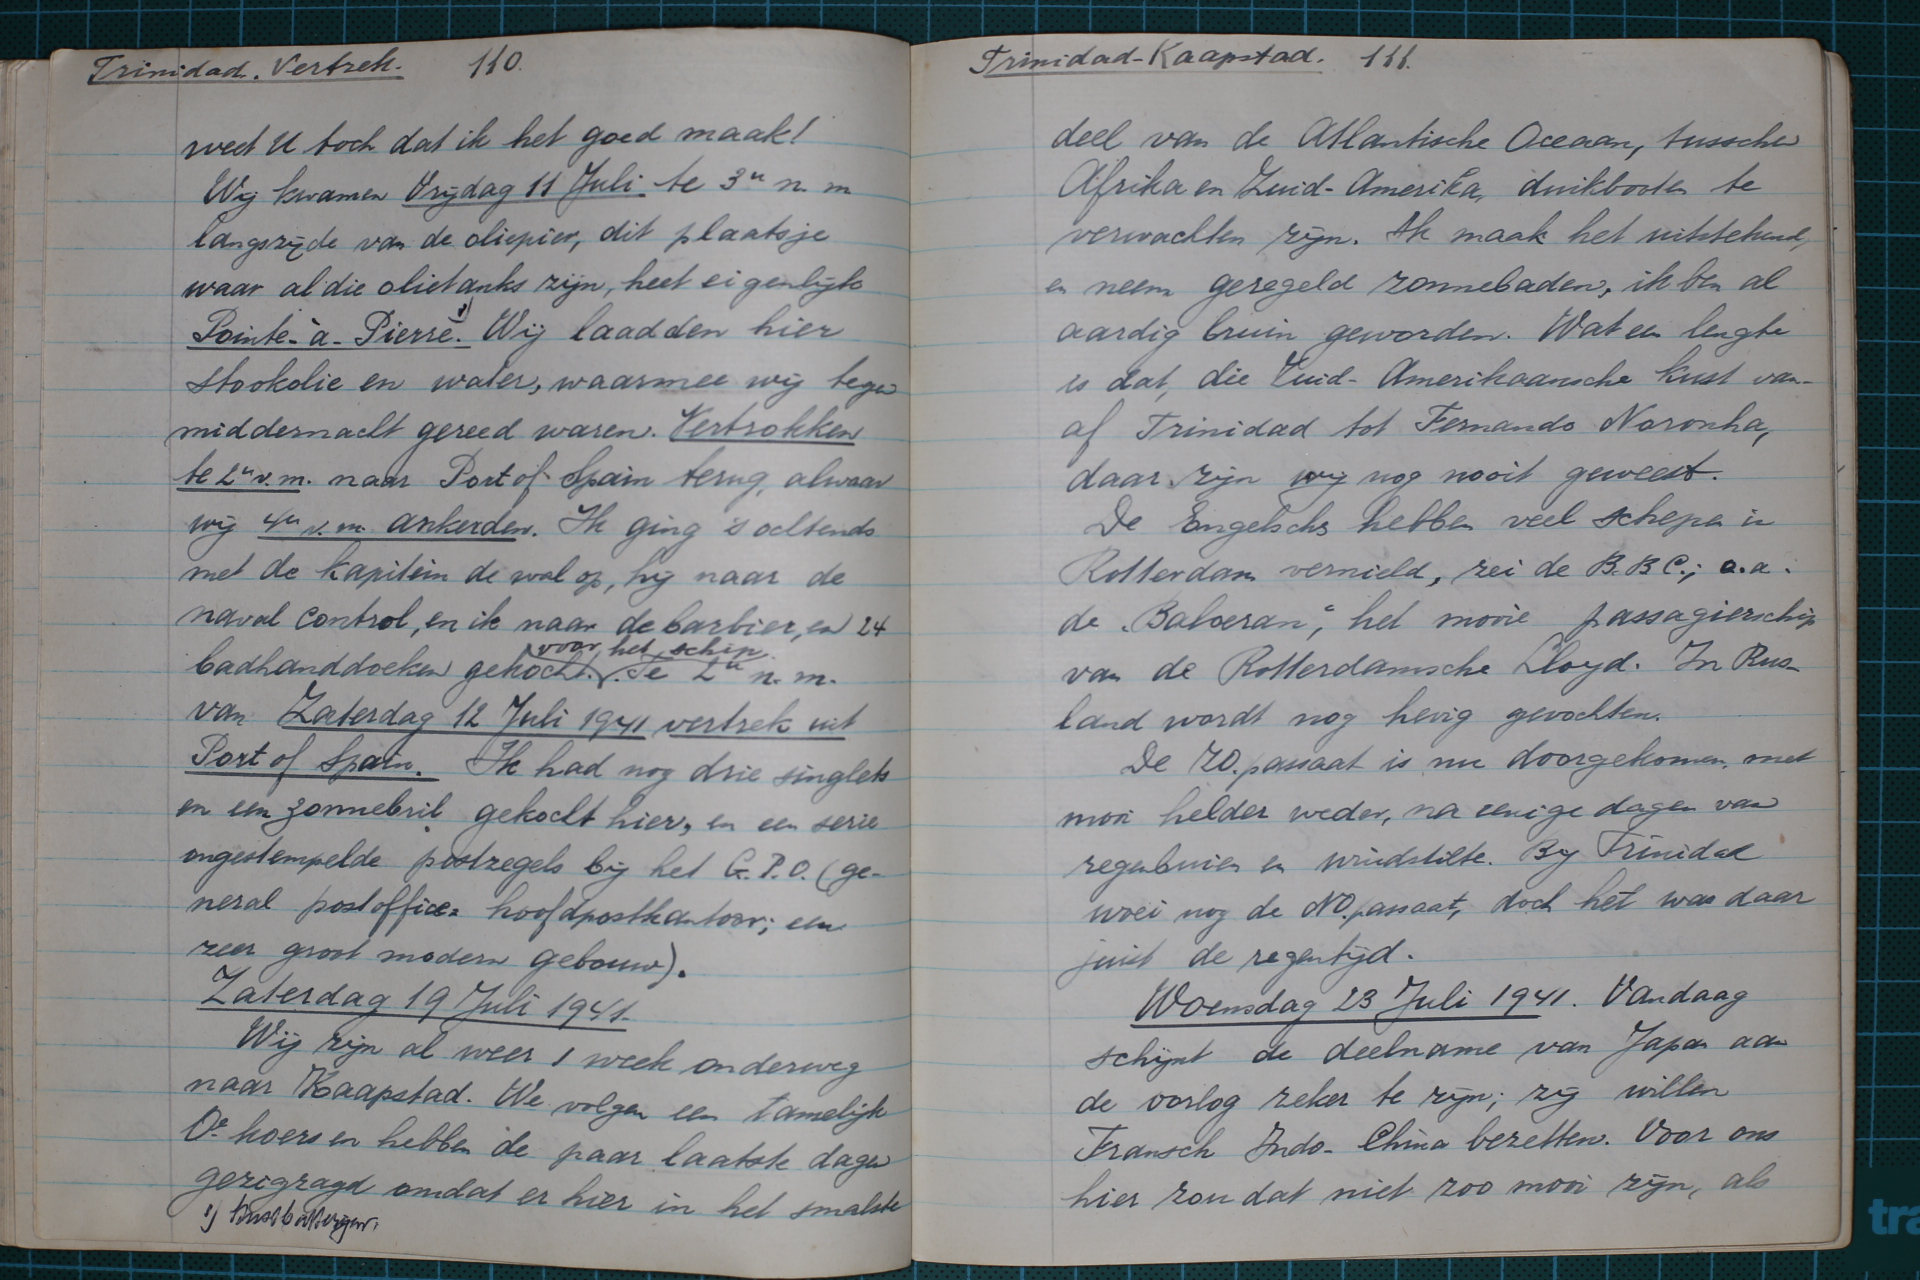 Trinidad. Vertrek. 110.
weet U toch dat ik het goed maak!
Wij kwamen Vrijdag 11 Juli te 3u n.m
langszijde van de oliepier, dit plaatsje
waar al die olietanks zijn, heet eigenlijk
Pointe-à-Pierre. 1) Wij laadden hier
stookolie en water, waarmee wij tegen
middernacht gereed waren. Vertrokken
te 2u v.m. naar Port of Spain terug, alwaar
wij 4u v.m. ankerden. Ik ging 's ochtends
met de kapitein de wal op, hij naar de
naval control, en ik naar de barbier, en 24
badhanddoeken gekocht voor het schip. Te 2u n.m.
van Zaterdag 12 Juli 1941 vertrek uit
Port of Spain. Ik had nog drie singlets
en een zonnebril gekocht hier, en een serie
ongestempelde postzegels bij het G.P.O. (ge-
neral postoffice = hoofdpostkantoor; een
zeer groot modern gebouw).
Zaterdag 19 Juli 1941.
Wij zijn al weer 1 week onderweg
naar Kaapstad. We volgen een tamelijk
O.e koers en hebben de paar laatste dagen
gezigzagd omdat er hier in het smalste
1) kustbatterijen.
Trinidad-Kaapstad. 111.
deel van de Atlantische Oceaan, tusschen
Afrika en Zuid-Amerika, duikbooten te
verwachten zijn. Ik maak het uitstekend,
en neem geregeld zonnebaden, ik ben al
aardig bruin geworden. Wat een lengte
is dat, die Zuid-Amerikaansche kust van-
af Trinidad tot Fernando Noronha,
daar zijn wij nog nooit geweest.
De Engelschs hebben veel schepen in
Rotterdam vernield, zei de B.B.C.; o.a.
de "Baloeran", het mooie passagierschip
van de Rotterdamsche Lloyd. In Rus-
land wordt nog hevig gevochten.
De ZO. passaat is nu doorgekomen, met
mooi helder weder, na eenige dagen van
regenbuien en windstilte. Bij Trinidad
woei nog de NO. passaat, doch het was daar
juist de regentijd.
Woensdag 23 Juli 1941. Vandaag
schijnt de deelname van Japan aan
de oorlog zeker te zijn; zij willen
Fransch Indo-China bezetten. Voor ons
hier zou dat niet zoo mooi zijn, als
tra